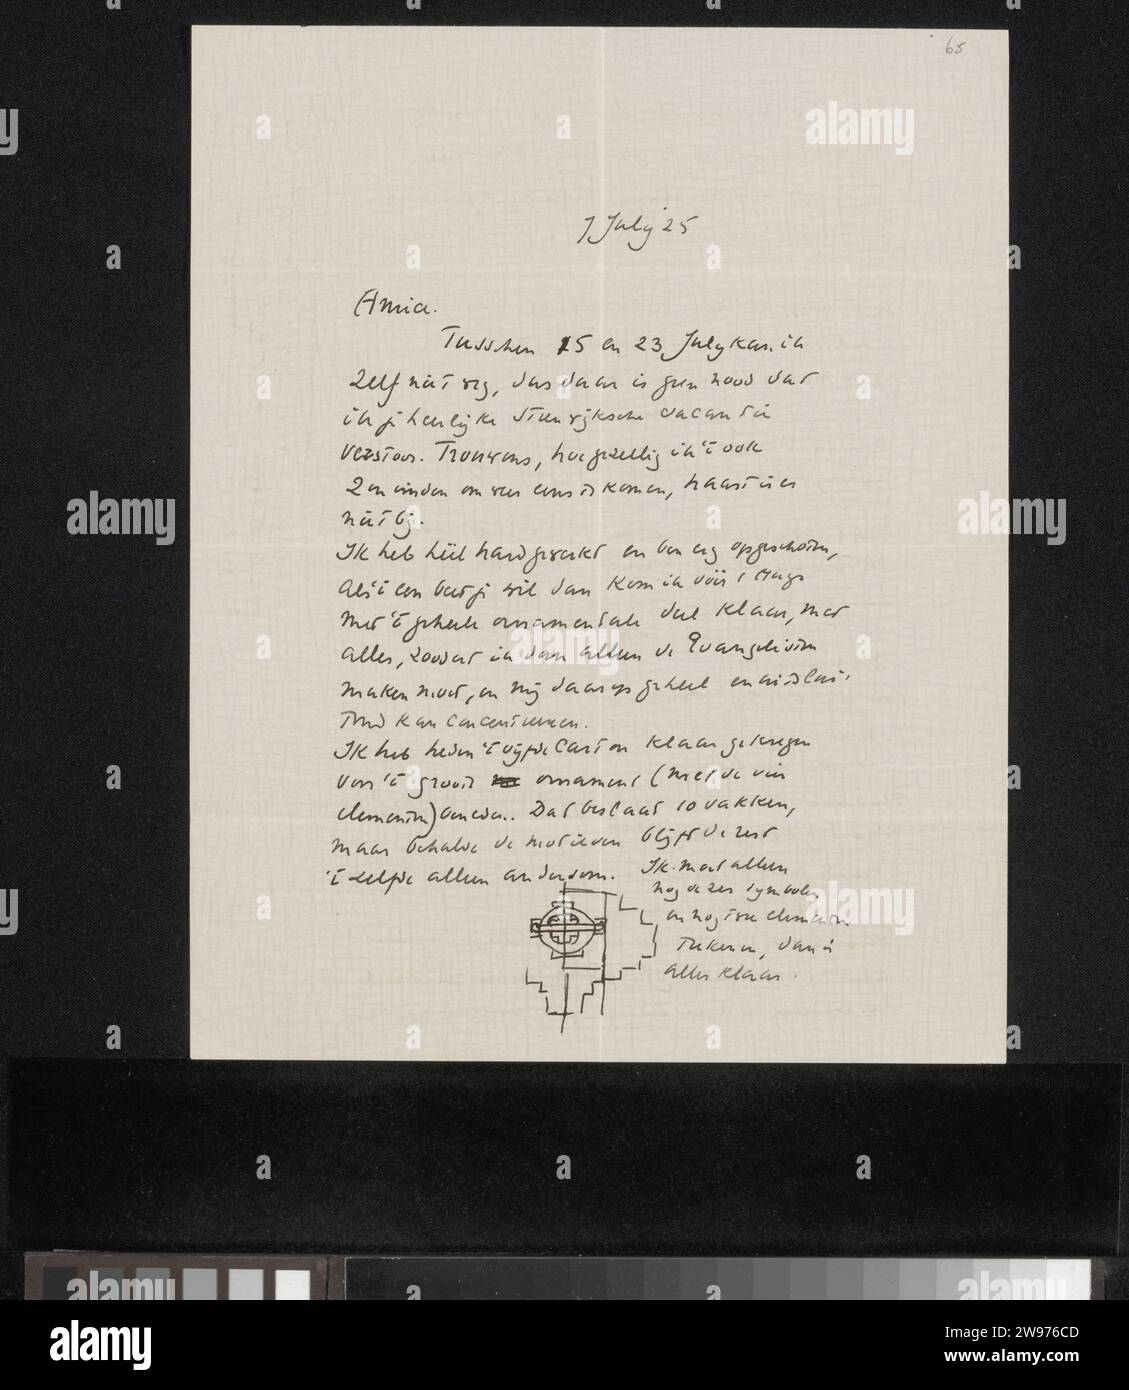 65
7 July '25
Amia.
Tusschen 15 en 23 July kan ik
zelf niet weg, dus daar is geen nood dat
ik je heerlijke vacantie
verstoor. Trouwens, hoe gezellig ik 't ook
zou vinden om weer eens te komen, haast is er
niet bij.
Ik heb héél hard gewerkt en ben erg opgeschoten,
als 't een beetje wil dan kom ik vóór 1
met 't geheele ornamentale deel klaar, met
alles, zoodat ik dan alleen de Evangelisten
maken moet, en mij daarop geheel en
kan concentreeren.
Ik heb heden 't vijfde carton klaar gekregen
voor 't groote ornament (met de vier
elementen) beneden. Dat beslaat 10 vakken,
maar behalve de motieven blijft de rest
't zelfde alleen andersom. Ik moet alleen
nog de zes symbolen
en nog twee elementen
teekenen, dan is
alles klaar.
alamy
alamy
Image ID: 2W976CD
www.alamy.com